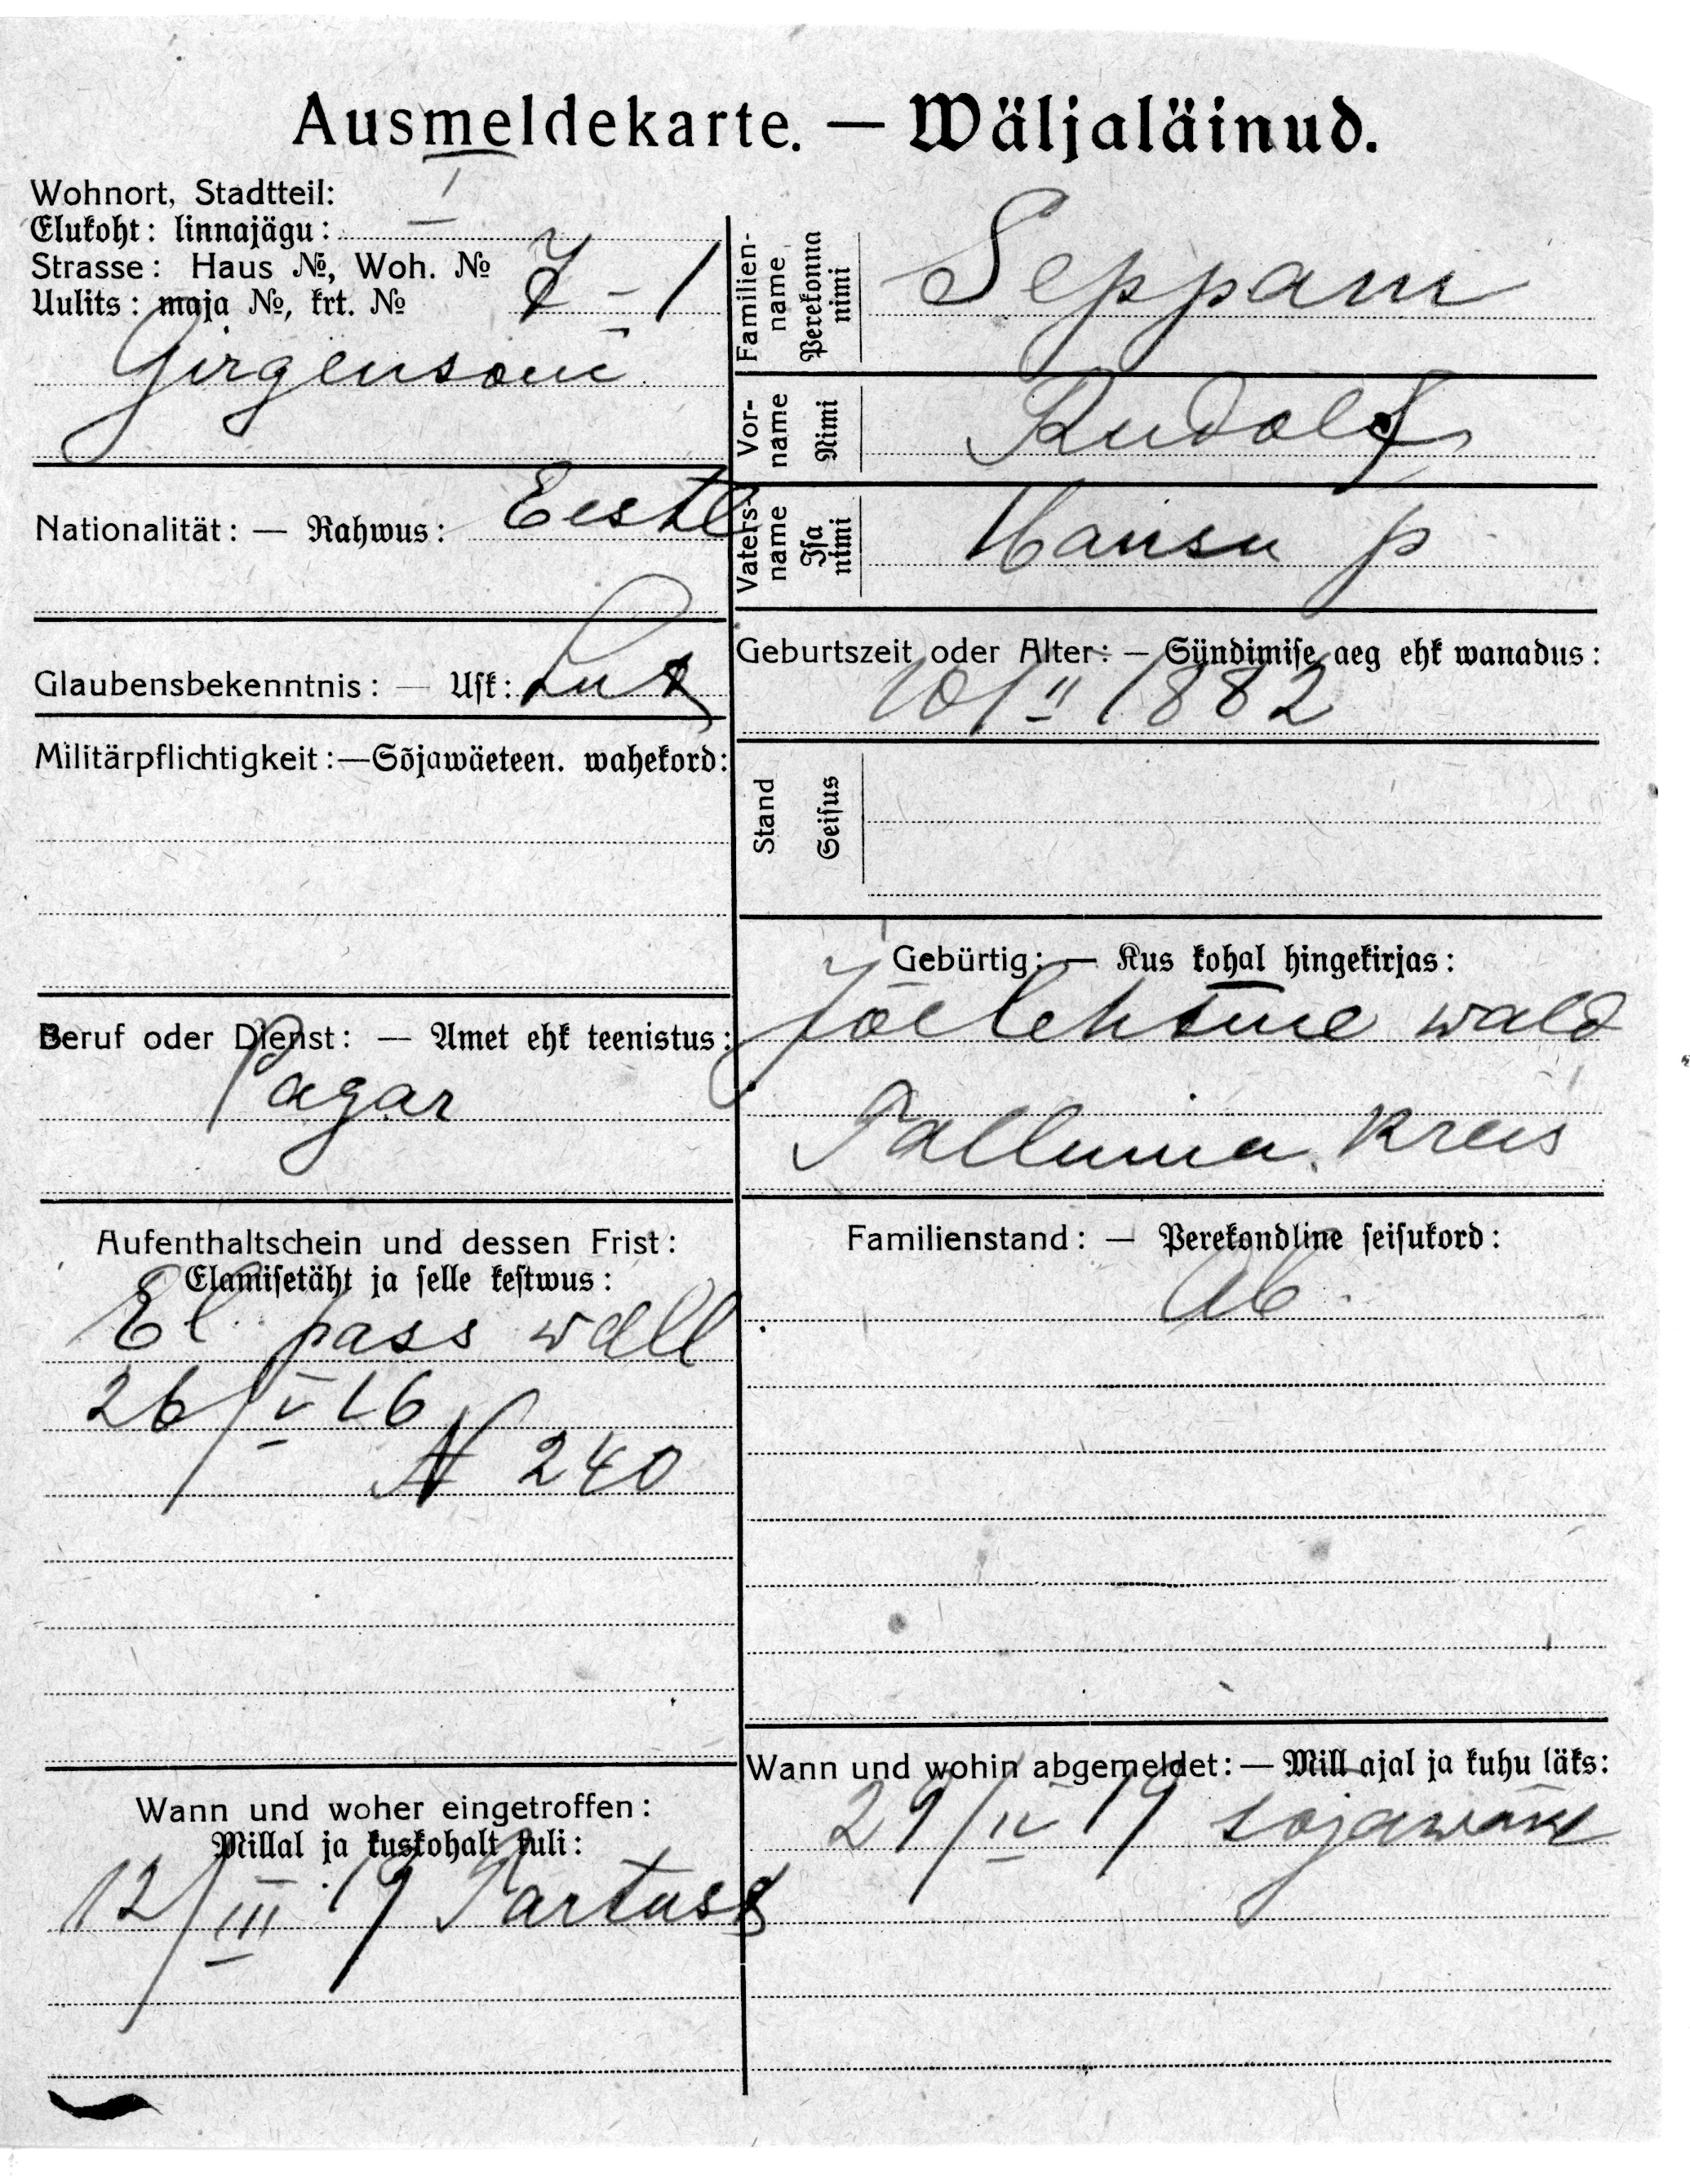 Ausmeldekarte. — Wäljaläinud.
Wohnort, Stadtteil:
Elukoht: linnajägu: I
Strasse: Haus №, Woh. №
Uulits: maja №, krt. № 7 - 1
Girgensoni
Nationalität: — Rahwus: Eestl
Glaubensbekenntnis: — Usk: Lut
Militärpflichtigkeit:—Sõjawäeteen. wahekord:
Beruf oder Dienst: — Amet ehk teenistus:
Pagar
Aufenthaltschein und dessen Frist:
Elamisetäht ja selle kestwus:
El. pass wall
26/V 16
N 240
Wann und woher eingetroffen:
Millal ja kuskohalt tuli:
12/III 19 Tartust
Familien-
name
Perekonna
nimi
Seppam
Vor-
name
Nimi
Rudolf
Vaters-
name
Isa
nimi
Hansu p
Geburtszeit oder Alter: — Sündimise aeg ehk wanadus:
10/II 1882
Stand
Seisus
Gebürtig: — Kus kohal hingekirjas:
Jõelehtme wald
Tallinna kreis
Familienstand: — Perekondline seisukord:
Ab.
Wann und wohin abgemeldet: — Mill ajal ja kuhu läks:
29/IV 19 sõjawäke